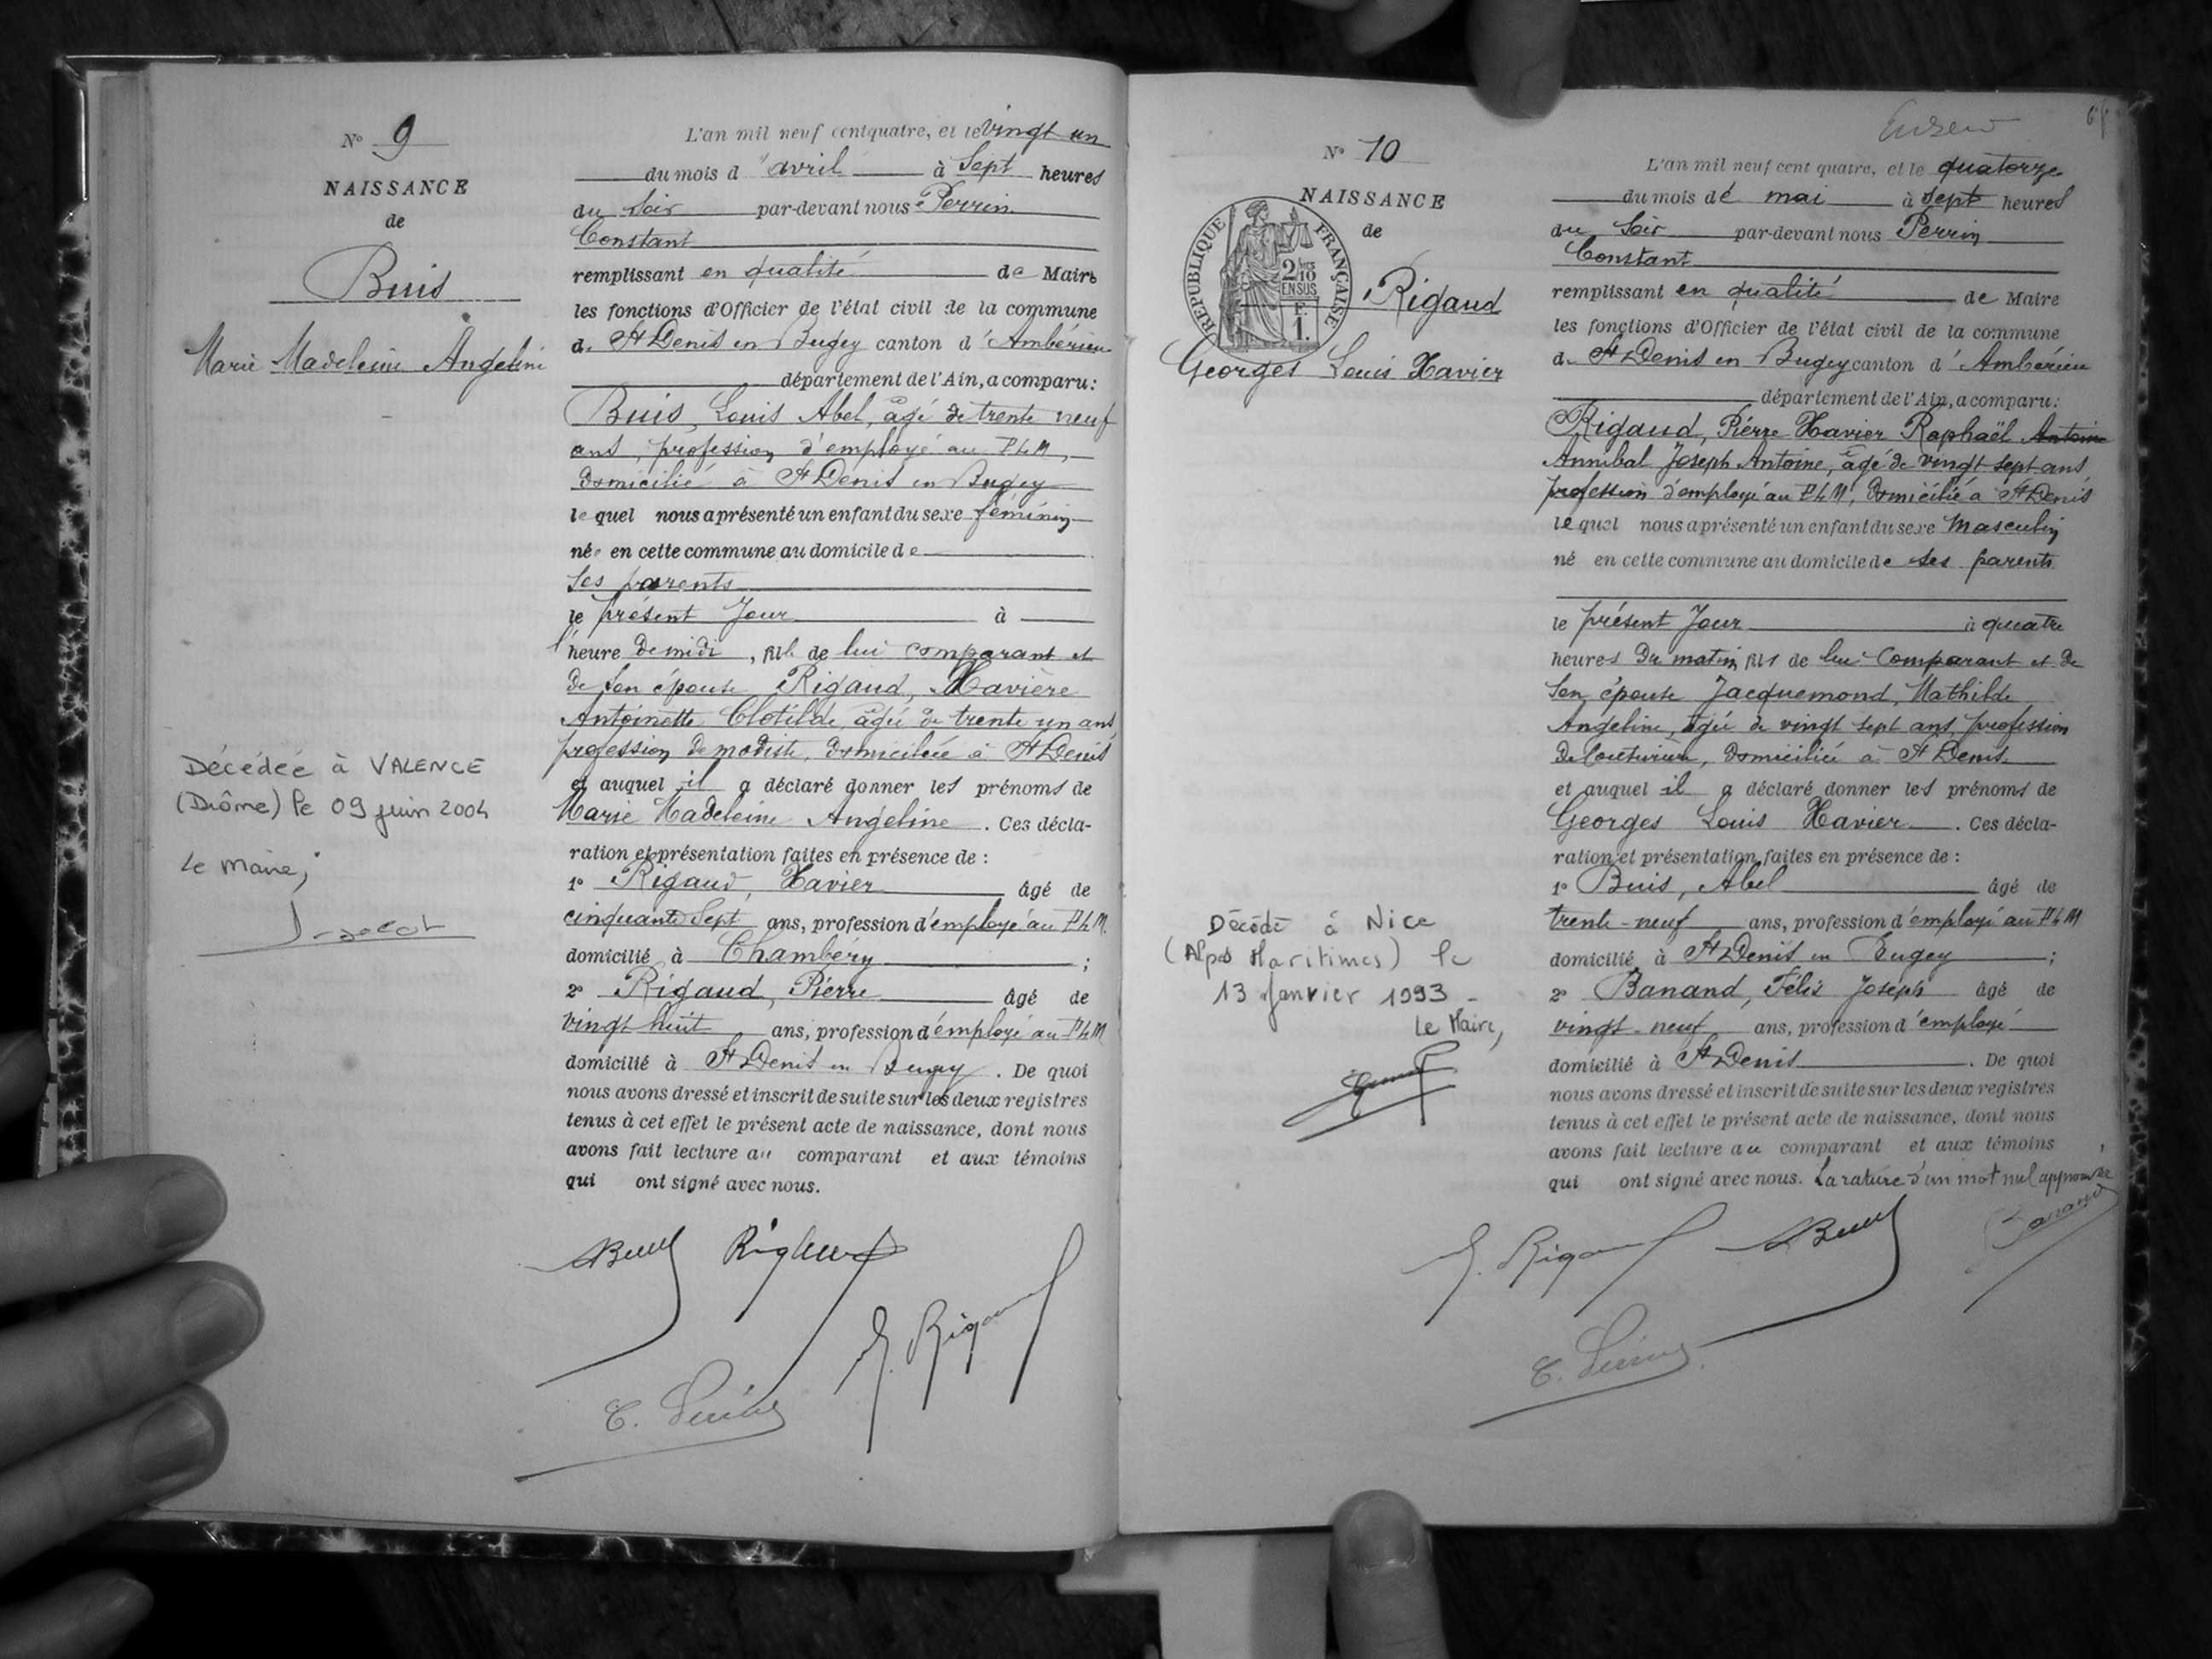 N° 9
NAISSANCE
de
Buis
Marie Madeleine Angeline
Décédée à VALENCE
(Drôme) le 09 juin 2004
Le Maire,
L'an mil neuf cent quatre, et le vingt un
du mois d'avril à Sept heures
du soir par-devant nous Perrin
Constant
remplissant en qualité de Maire
les fonctions d'Officier de l'état civil de la commune
de St Denis en Bugey canton d'Ambérieu
département de l'Ain, a comparu:
Buis, Louis Abel, âgé de trente neuf
ans, profession d'employé au PLM,
domicilié à St Denis en Bugey
lequel nous a présenté un enfant du sexe féminin
née en cette commune au domicile de
Ses parents
le présent Jour à
l'heure de midi, fille de lui comparant et
de son épouse Rigaud, Xavière
Antoinette Clotilde, âgée de trente un ans
profession de modiste, domiciliée à St Denis
et auquel il a déclaré donner les prénoms de
Marie Madeleine Angéline. Ces décla-
ration et présentation faites en présence de :
1° Rigaud, Xavier âgé de
cinquante Sept ans, profession d'employé au PLM.
domicilié à Chambéry ;
2° Rigaud, Pierre âgé de
vingt huit ans, profession d'employé au PLM
domicilié à St Denis en Bugey. De quoi
nous avons dressé et inscrit de suite sur les deux registres
tenus à cet effet le présent acte de naissance, dont nous
avons fait lecture au comparant et aux témoins
qui ont signé avec nous.
ABuis Rigaud
Rigaud
C. Perrin
N° 10
NAISSANCE
de
RÉPUBLIQUE FRANÇAISE
2/10
EN SUS
F.
1.
Rigaud
Georges Louis Xavier
Décédé à Nice
(Alpes Maritimes) le
13 Janvier 1993 -
Le Maire,
L'an mil neuf cent quatre, et le quatorze
du mois de mai à sept heures
du soir par-devant nous Perrin
Constant
remplissant en qualité de Maire
les fonctions d'Officier de l'état civil de la commune
de St Denis en Bugey canton d'Ambérieu
département de l'Ain, a comparu:
Rigaud, Pierre Xavier Raphaël Antoine
Annibal Joseph Antoine, âgé de vingt sept ans
profession d'employé au PLM, domicilié à St Denis
lequel nous a présenté un enfant du sexe masculin
né en cette commune au domicile de ses parents
le présent Jour à quatre
heures du matin, fils de lui comparant et de
son épouse Jacquemond, Mathilde
Angeline, âgée de vingt sept ans, profession
de couturière, domiciliée à St Denis
et auquel il a déclaré donner les prénoms de
Georges Louis Xavier. Ces décla-
ration et présentation faites en présence de :
1° Buis, Abel âgé de
trente-neuf ans, profession d'employé au PLM
domicilié à St Denis en Bugey ;
2° Banand, Félix Joseph âgé de
vingt-neuf ans, profession d'employé
domicilié à St Denis. De quoi
nous avons dressé et inscrit de suite sur les deux registres
tenus à cet effet le présent acte de naissance, dont nous
avons fait lecture au comparant et aux témoins
qui ont signé avec nous. La rature d'un mot nul approuvée
Rigaud ABuis Banand
C. Perrin